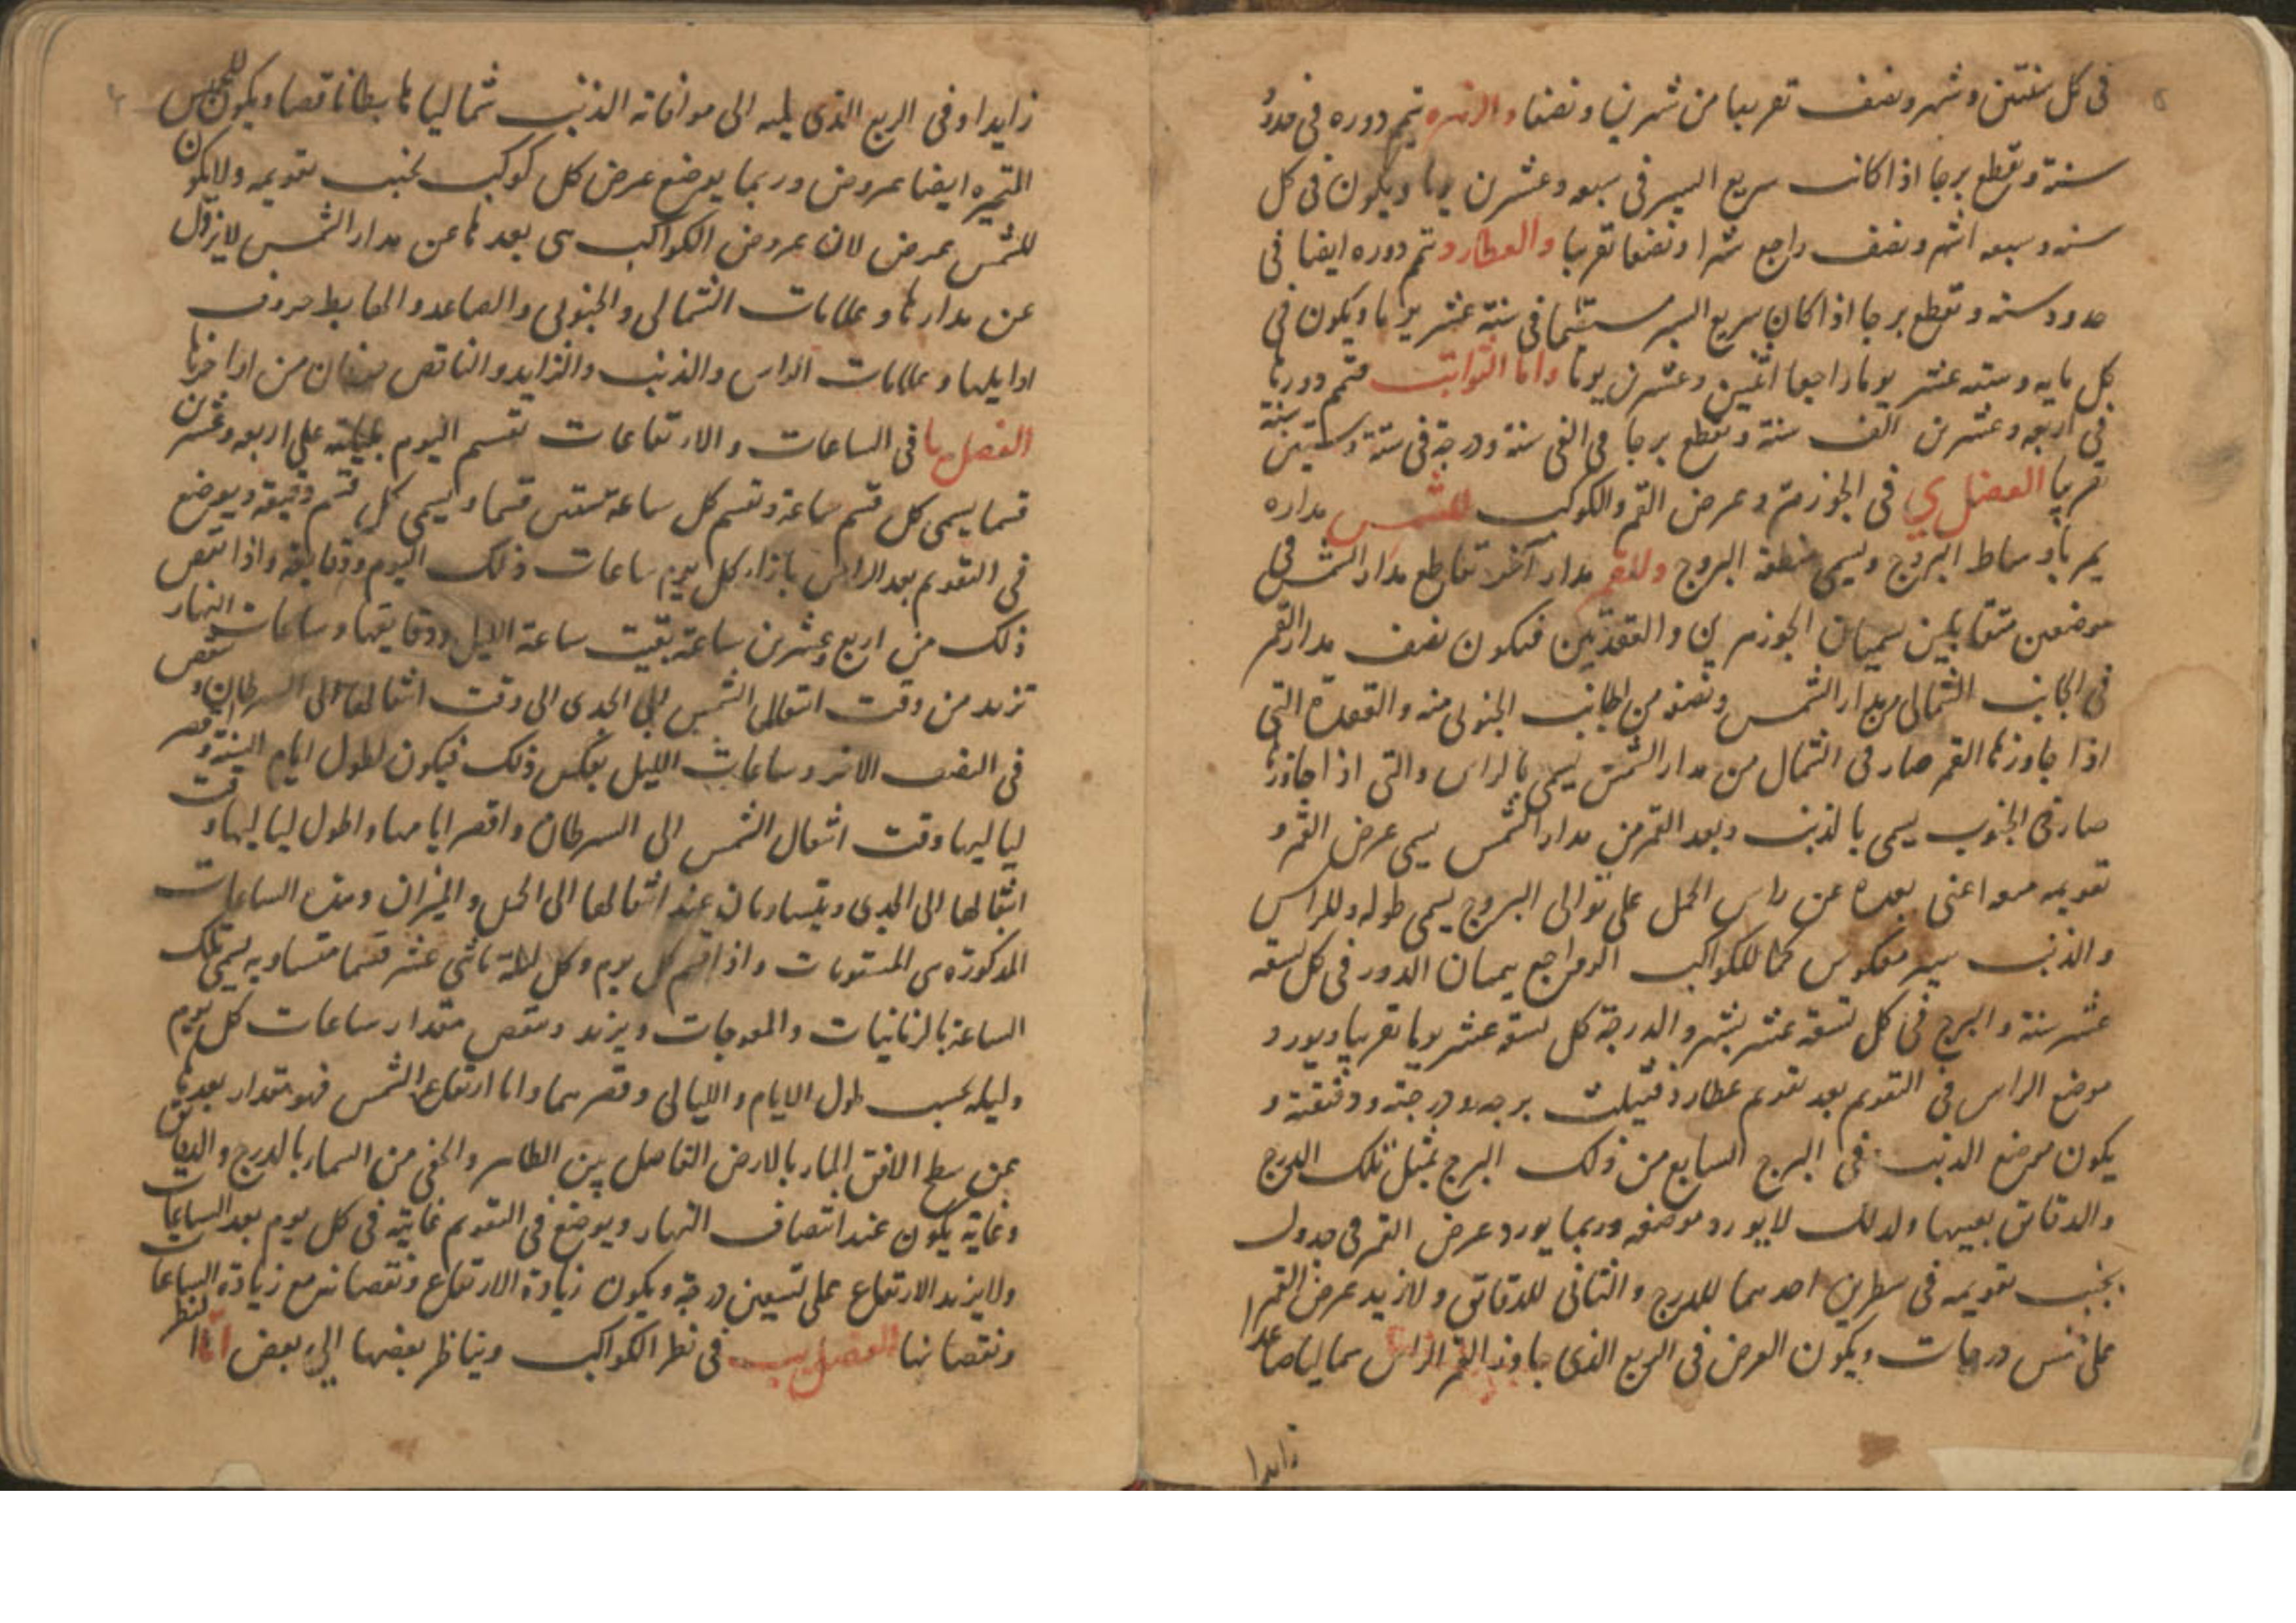 فى كل سنتين وشهر ونصف تقريبا من شهرين ونصفا والزهره تتم دوره فى حدود
سنة وتقطع برجا اذا كانت سريع السير فى سبعه وعشرين يوما ويكون فى كل
سنه وسبعه اشهر ونصف راجع شهرا ونصفا تقريبا والعطارد تتم دوره ايضا فى
حدود سنه وتقطع برجا اذا كان سريع السير مستقيما فى ستة عشر يوما ويكون فى
كل مايه وستة عشر يوما راجعا اثنين وعشرين يوما واما الثوابت فتتم دورتها
فى اربعه وعشرين الف سنة وتقطع برجا فى الفى سنة ودرجة فى ستة وستين سنة
تقريبا الفصل ى فى الجوزهر وعرض القمر والكوكب للشمس مداره
يمر باوساط البروج ويسمى منطقة البروج وللقمر مدار آخر تقاطع مدار الشمس فى
موضعين متقابلين يسميان الجوزهرين والعقدتين فيكون نصف مدار القمر
فى الجانب الشمالى من مدار الشمس ونصفه من الجانب الجنوبى منه والعقدة التى
اذا جاوزها القمر صار فى الشمال من مدار الشمس يسمى بالراس والتى اذا جاوزها
صار فى الجنوب يسمى بالذنب وبعد القمر من مدار الشمس يسمى عرض القمر و
تقويمه هو اعنى بعده عن راس الحمل على توالى البروج يسمى طوله وللراس
والذنب سير معكوس كما للكواكب الرواجع يتمان الدور فى كل تسعه
عشر سنة والبرج فى كل تسعة عشر شهر والدرجة كل تسعة عشر يوما تقريبا ويورد
موضع الراس فى التقويم بعد تقويم عطارد برجه ودرجته ودقيقته و
يكون موضع الذنب فى البرج السابع من ذلك البرج بمثل تلك الدرج
والدقائق بعينها ولذلك لا يورد موضعه وربما يورد عرض القمر فى جدول
بجنب تقويمه فى سطرين احدهما للدرج والثانى للدقائق ولا يزيد عرض القمر
على خمس درجات ويكون العرض فى الربع الذى جاوز القمر الراس شماليا صاعدا
زايدا
زايدا وفى الربع الذى يليه الى موافاته الذنب شماليا هابطا ناقصا ويكون للخمس
المتحيره ايضا عروض وربما يوضع عرض كل كوكب بجنب تقويمه ولا يكون
للشمس عرض لان عروض الكواكب هى بعدها عن مدار الشمس لا يزول
عن مدارها وعلامات الشمالى والجنوبى والصاعد والهابط حروف
اوايلها وعلامات الراس والذنب والزايد والناقص حرفان من اواخرها
الفصل يا فى الساعات والارتفاعات تقسم اليوم بليلته على اربعه وعشرين
قسما يسمى كل قسم ساعة وتقسم كل ساعة ستين قسما ويسمى كل قسم دقيقه ويوضع
فى التقويم بعد الراس بازاء كل يوم ساعات ذلك اليوم ودقايقه واذا نقص
ذلك من اربع وعشرين ساعة بقيت ساعة الليل ودقايقها وساعات النهار
تزيد من وقت انتقال الشمس الى الجدى الى وقت انتقالها الى السرطان وتنقص
فى النصف الاخر وساعات الليل بعكس ذلك فيكون اطول ايام السنة واقصر
لياليها وقت انتقال الشمس الى السرطان واقصر ايامها واطول لياليها وقت
انتقالها الى الجدى ويتساويان عند انتقالها الى الحمل والميزان وهذه الساعات
المذكورة هى المستويات واذا قسم كل يوم وكل ليلة باثنى عشر قسما متساويه يسمى تلك
الساعة بالزمانيات والمعوجات ويزيد وينقص مقدار ساعات كل يوم
وليله بحسب طول الايام والليالى وقصرهما واما ارتفاع الشمس فهو مقدار بعدها
عن سطح الافق المار بالارض الفاصل بين الظاهر والخفى من السماء بالدرج والدقايق
وغايته يكون عند انتصاف النهار ويوضع فى التقويم غايته فى كل يوم بعد الساعات
ولا يزيد الارتفاع على تسعين درجة ويكون زيادة الارتفاع ونقصانه مع زيادة الساعات
ونقصانها الفصل يب فى نظر الكواكب ويناظر بعضها الى بعض اما النظر